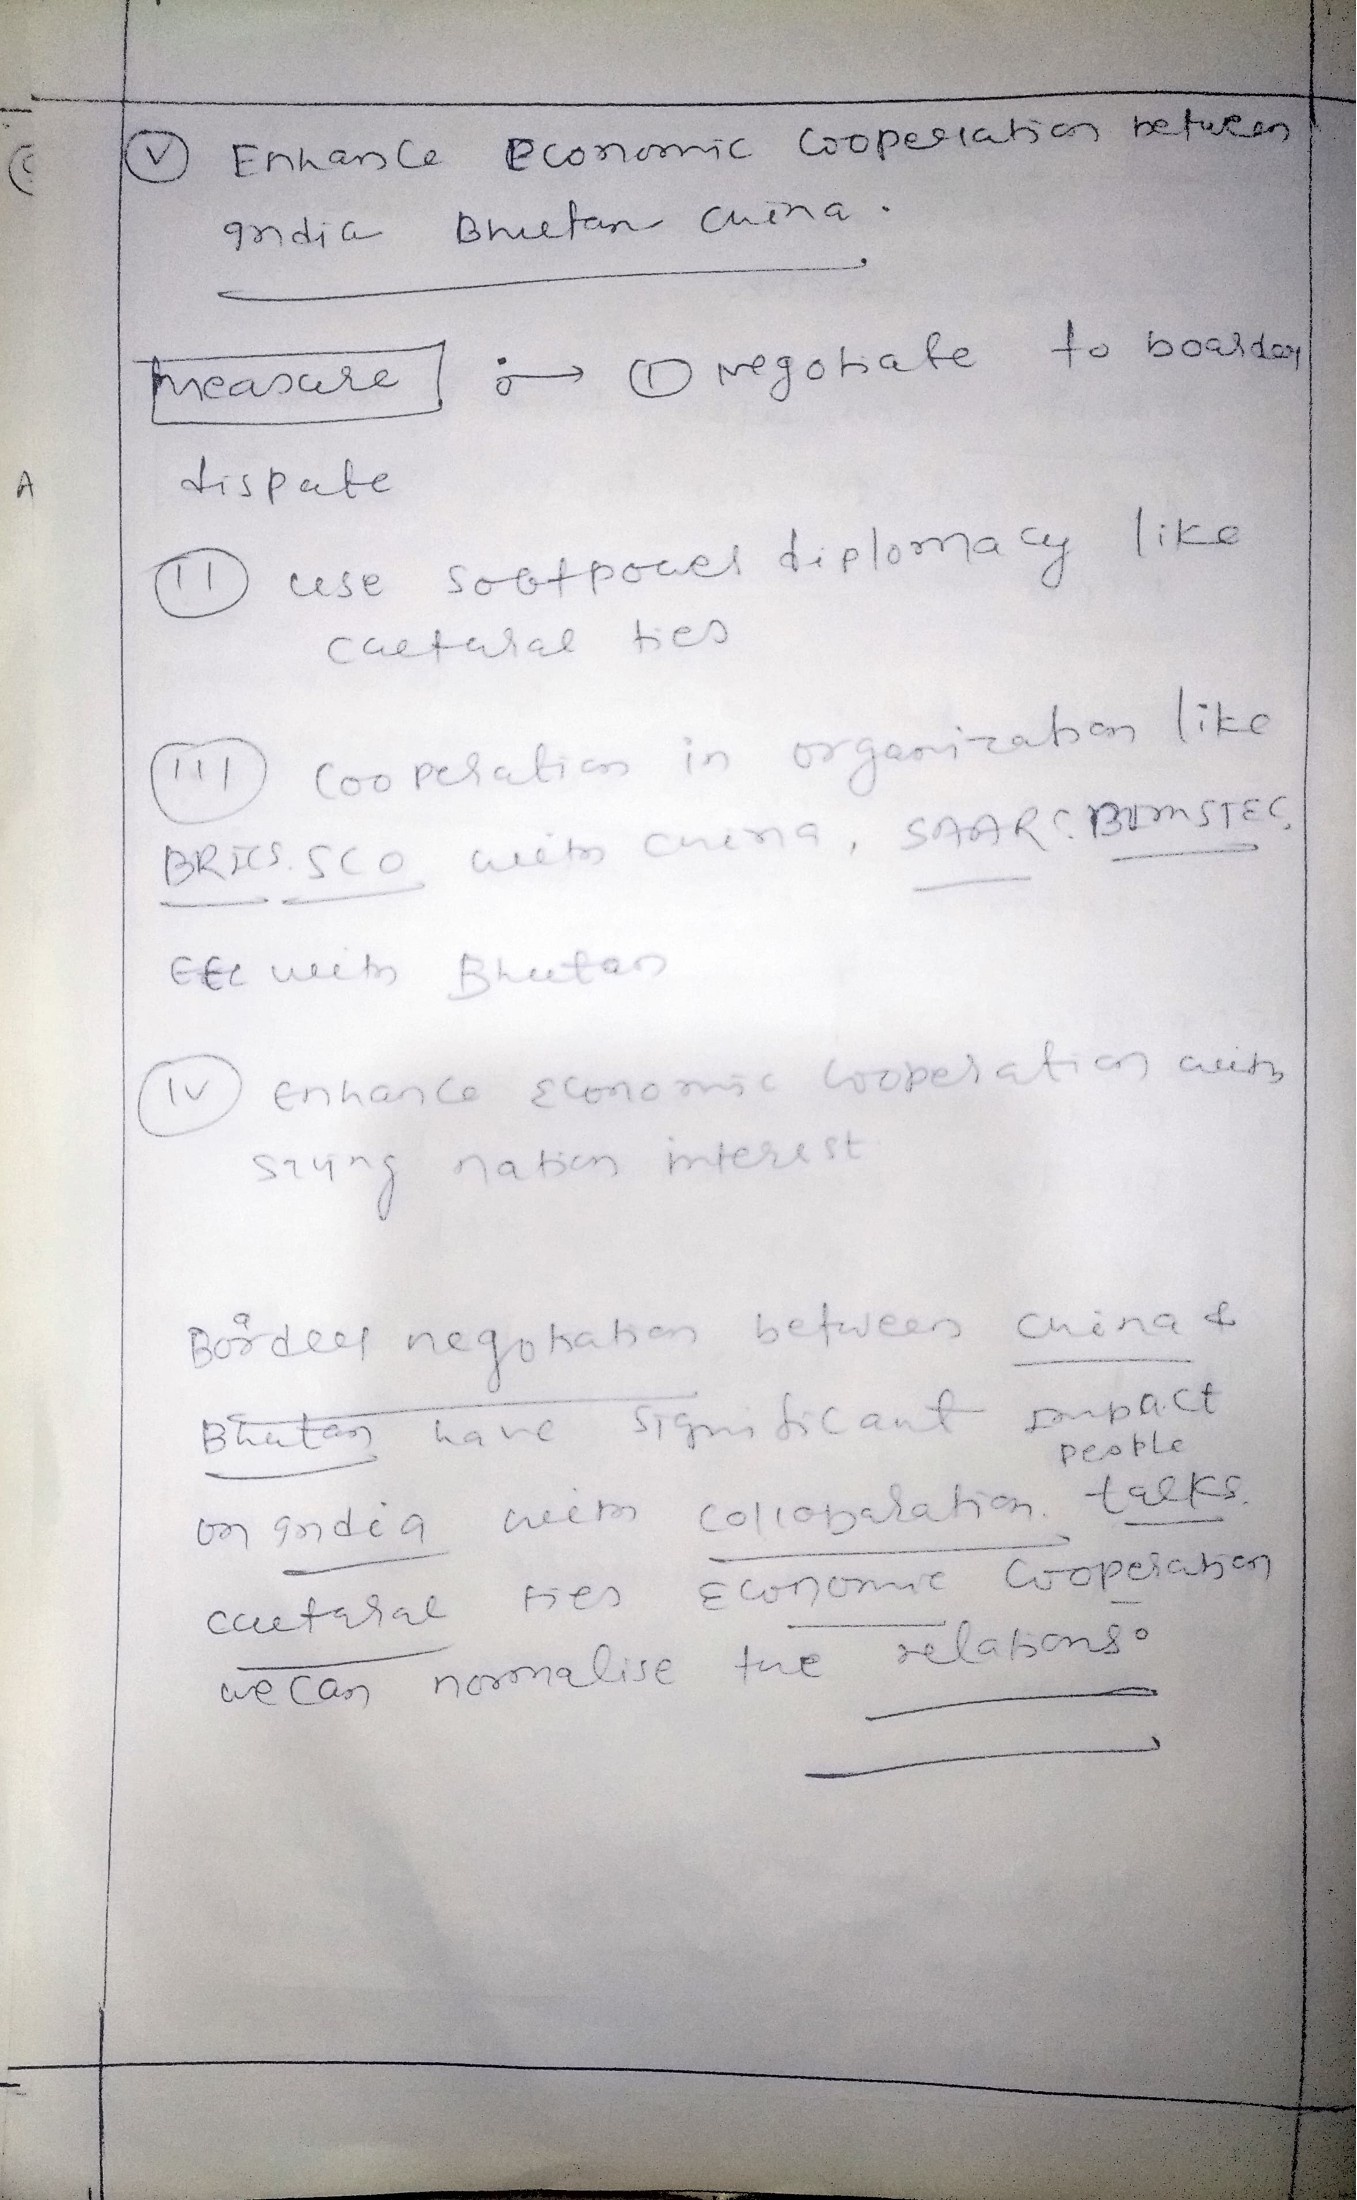 (V) Enhance Economic Cooperation between
India Bhutan China.
measure :→ (1) Negotiate to boarder
dispute
(11) use softpower diplomacy like
cultural ties
(111) Cooperation in organization like
BRICS. SCO with China, SAARC. BIMSTEC,
with Bhutan
A
(IV) Enhance Economic Cooperation with
nation interest
Boarder negotiation between China &
Bhutan have significant impact
people
on India with collobaration. talks.
cultural ties Economic Cooperation
we can normalise the relations.